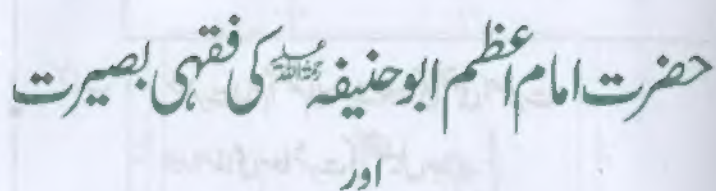 حضرت امام اعظم ابوحنیفہ رحمۃ اللہ علیہ کی فقہی بصیرت
اور